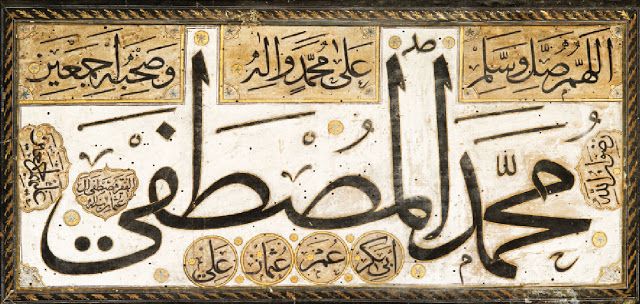 اللهم صل وسلم
على محمد واله
وصحبه اجمعين
محمد المصطفى
رضوان الله
ابى بكر
عمر
عثمان
على